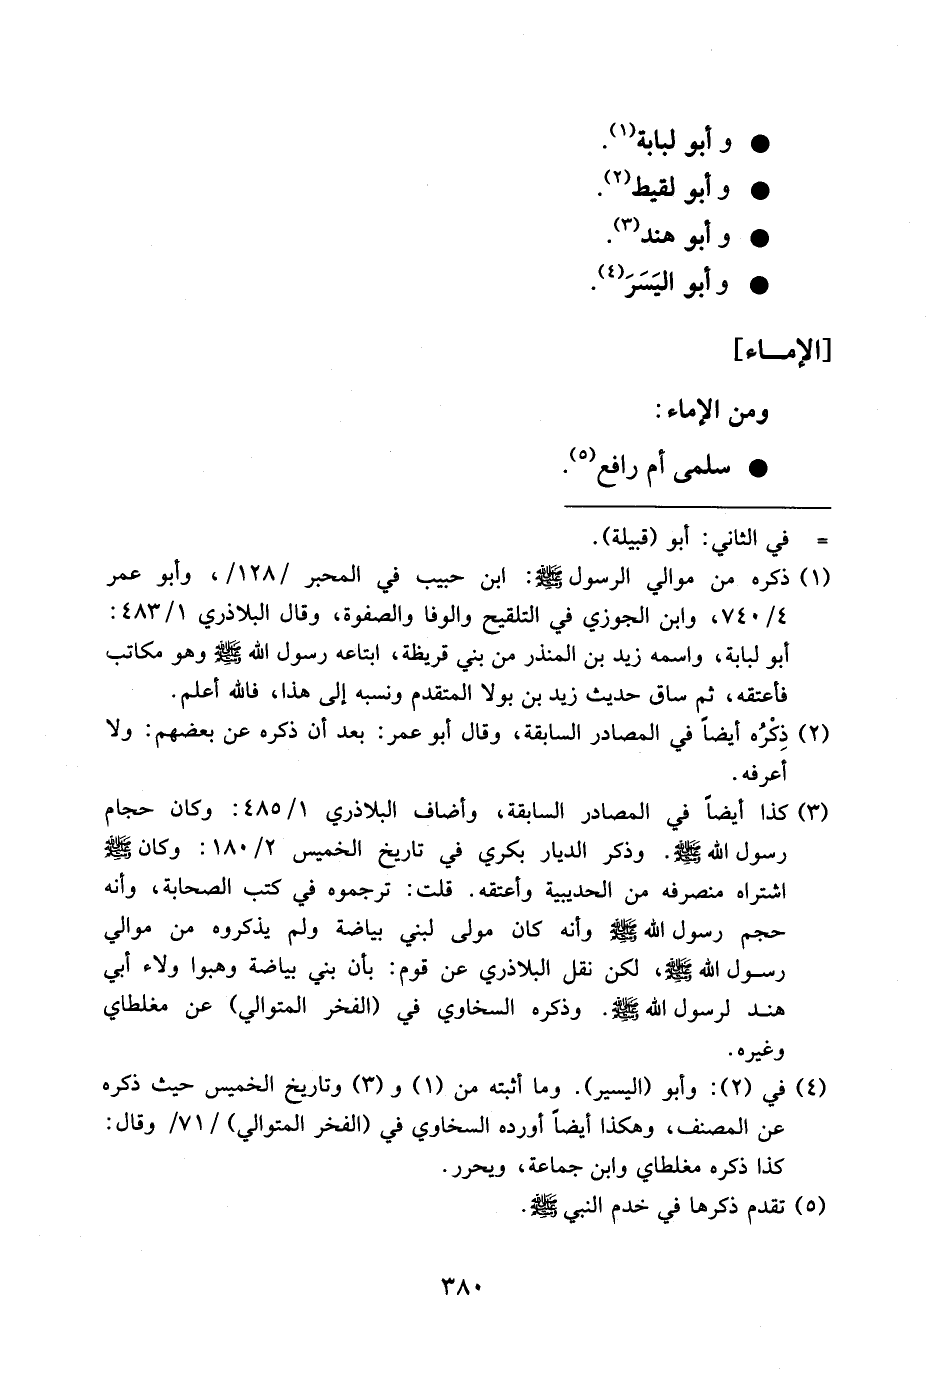 ● و أبو لبابة(١).
● و أبو لقيط(٢).
● و أبو هند(٣).
● و أبو اليَسَرَ(٤).
[الإمـــاء]
ومن الإماء:
● سلمى أم رافع(٥).
= في الثاني: أبو (قبيلة).
(١) ذكره من موالي الرسول ﷺ: ابن حبيب في المحبر /١٢٨/، وأبو عمر
٤/ ٧٤٠، وابن الجوزي في التلقيح والوفا والصفوة، وقال البلاذري ١/ ٤٨٣:
أبو لبابة، واسمه زيد بن المنذر من بني قريظة، ابتاعه رسول الله ﷺ وهو مكاتب
فأعتقه، ثم ساق حديث زيد بن بولا المتقدم ونسبه إلى هذا، فالله أعلم.
(٢) ذِكْرُه أيضاً في المصادر السابقة، وقال أبو عمر: بعد أن ذكره عن بعضهم: ولا
أعرفه.
(٣) كذا أيضاً في المصادر السابقة، وأضاف البلاذري ١/ ٤٨٥: وكان حجام
رسول الله ﷺ. وذكر الديار بكري في تاريخ الخميس ٢/ ١٨٠: وكان ﷺ
اشتراه منصرفه من الحديبية وأعتقه. قلت: ترجموه في كتب الصحابة، وأنه
حجم رسول الله ﷺ وأنه كان مولى لبني بياضة ولم يذكروه من موالي
رسـول الله ﷺ، لكن نقل البلاذري عن قوم: بأن بني بياضة وهبوا ولاء أبي
هنـد لرسول الله ﷺ. وذكره السخاوي في (الفخر المتوالي) عن مغلطاي
وغيره.
(٤) في (٢): وأبو (اليسير). وما أثبته من (١) و (٣) وتاريخ الخميس حيث ذكره
عن المصنف، وهكذا أيضاً أورده السخاوي في (الفخر المتوالي) /٧١/ وقال:
كذا ذكره مغلطاي وابن جماعة، ويحرر.
(٥) تقدم ذكرها في خدم النبي ﷺ.
٣٨٠